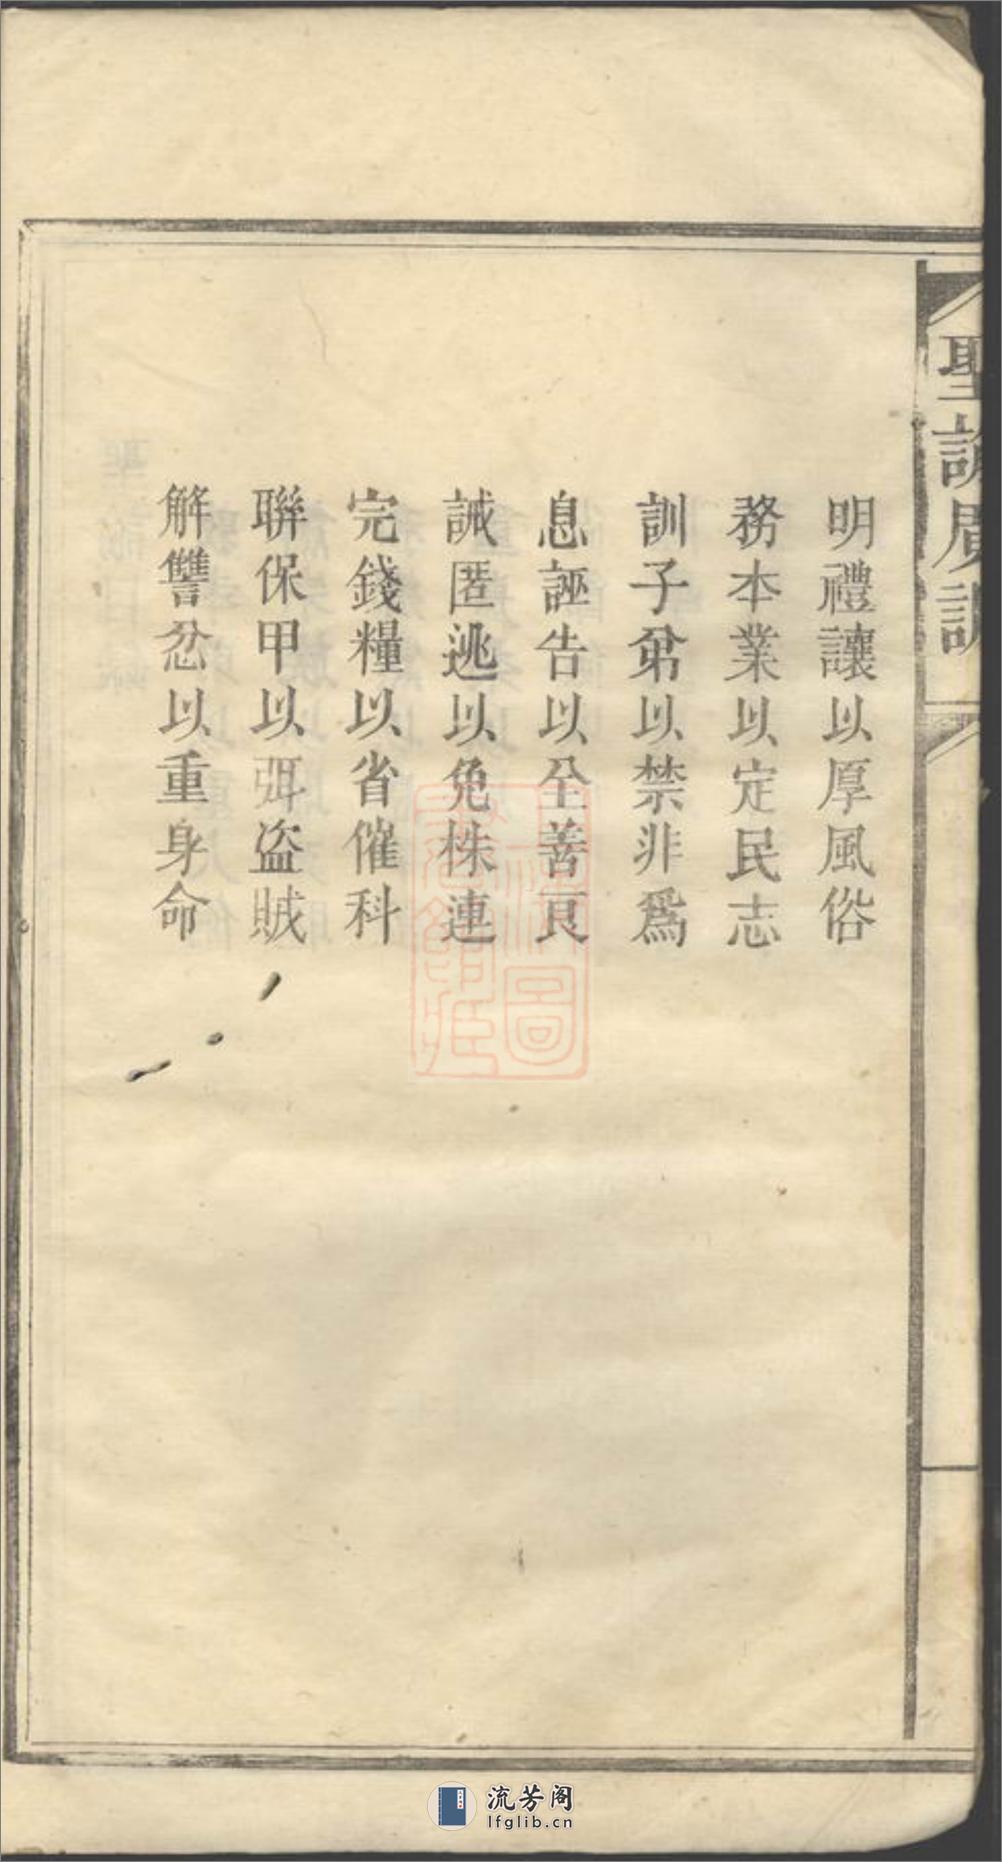 聖諭廣訓
明禮讓以厚風俗
務本業以定民志
訓子弟以禁非爲
息誣告以全善良
誡匿逃以免株連
完錢糧以省催科
聯保甲以弭盜賊
解讐忿以重身命
流芳阁
lfglib.cn